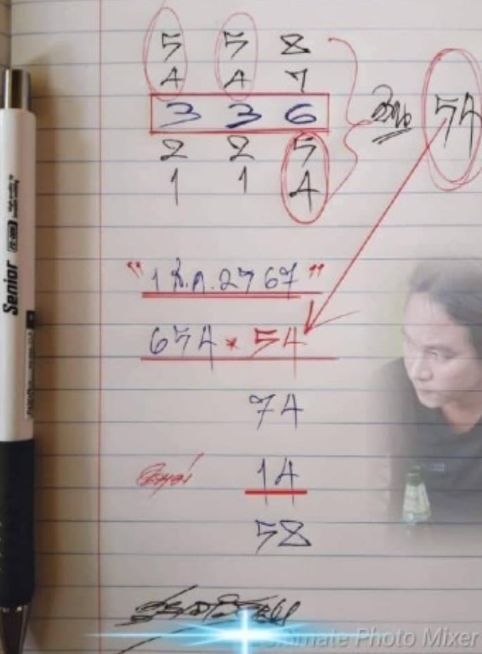 5 5 8
4 4 7
3 3 6
2 2 5
1 1 4
54
"1 ธ.ค. 2767"
654 * 54
74
14
58
Senior
Ultimate Photo Mixer